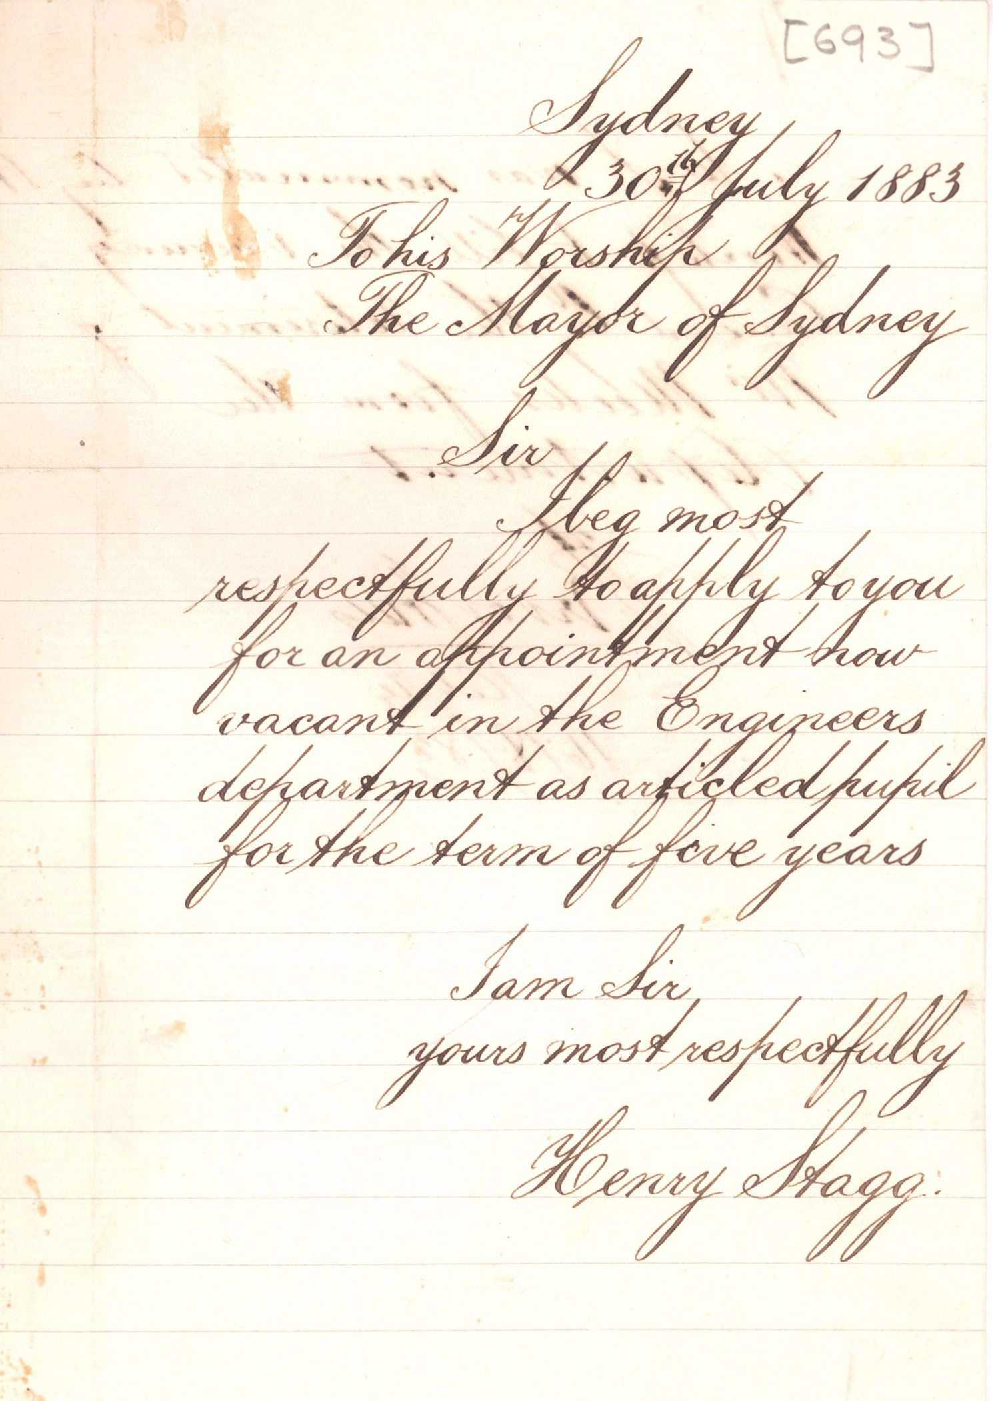 [693]
Sydney
30th July 1883
To his Worship
The Mayor of Sydney
Sir
I beg most
respectfully to apply to you
for an appointment now
vacant in the Engineers
department as articled pupil
for the term of five years
I am Sir
yours most respectfully
Henry Stagg.